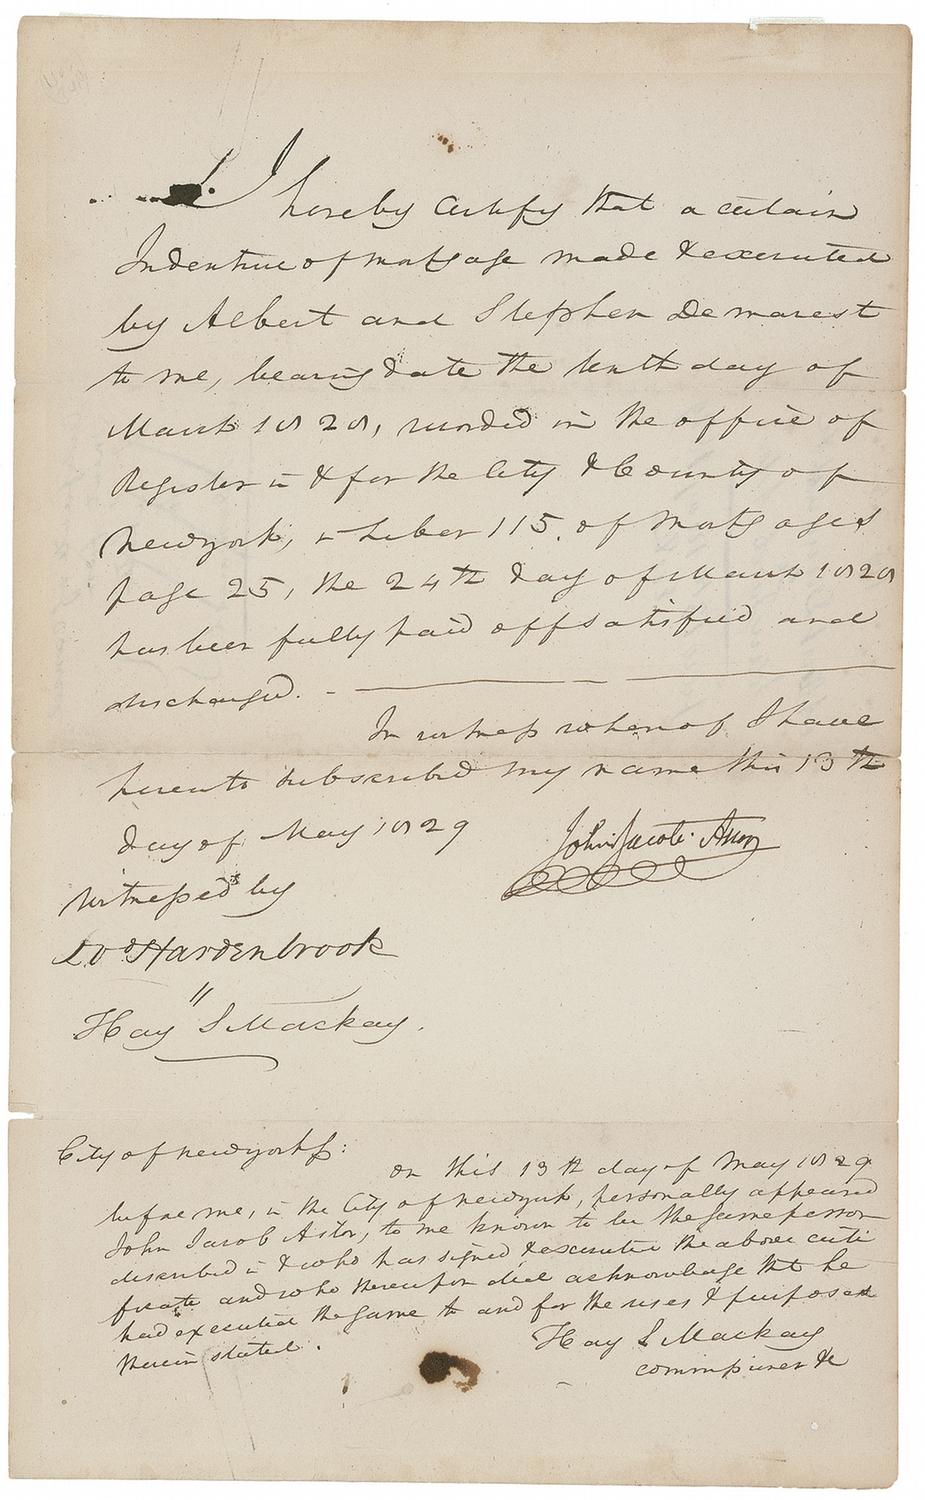 I hereby Certify that a certain
Indenture of Mortgage made & executed
by Albert and Stephen Demarest
to me, bearing date the tenth day of
March 1828, recorded in the office of
Register in & for the City & County of
New york, in Liber 115. of Mortgages
page 25, the 24th day of March 1828
has been fully paid off satisfied and
discharged.
In witness whereof I have
hereunto subscribed my name this 13th
day of May 1829
John Jacob Astor
Witnessed by
Hardenbrook
Hay S Mackay.
City of New york ss:
On this 13th day of May 1829
before me, in the City of New york, personally appeared
John Jacob Astor, to me known to be the same person
described in & who has signed & executed the above certi
ficate and who thereupon did acknowledge that he
had executed the same to and for the uses & purposes
therein stated.
Hay S Mackay
commissioner &c